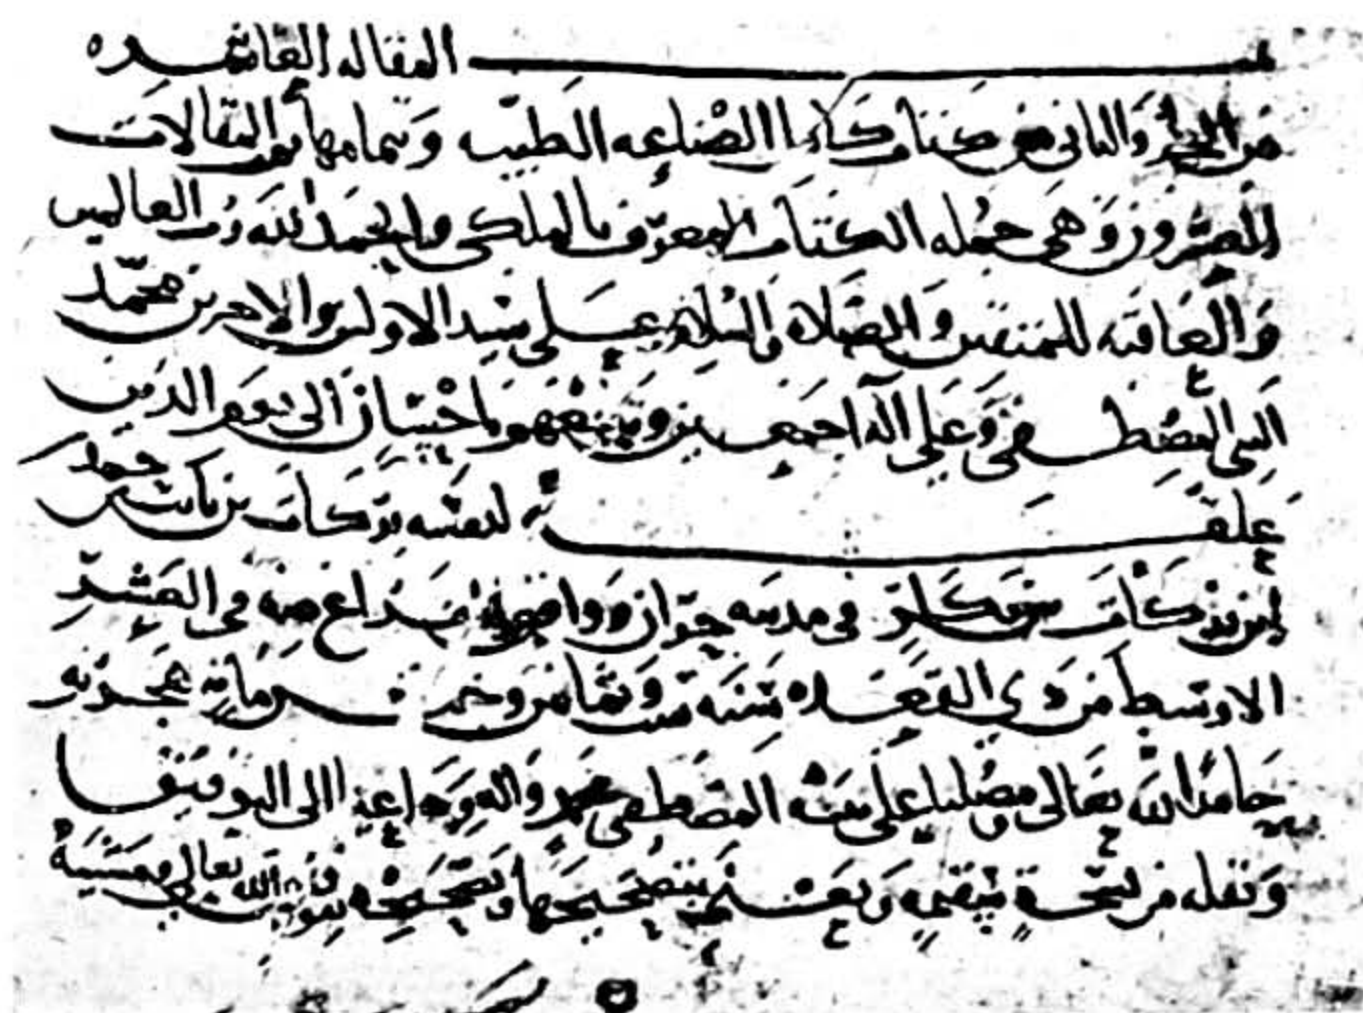 تمت المقاله العاشره
من الجزء الثانى من كتاب كامل الصناعه الطبيه وبتمامها تمت المقالات
العشرون وهى جمله الكتاب المعروف بالملكى والحمد لله رب العالمين
والعاقبه للمتقين والصلاه والسلام على سيد الاولين والاخرين محمد
النبى المصطفى وعلى اله اجمعين وتابعيهم باحسان الى يوم الدين
علقه لنفسه بركات بن ثابت بن حمد
بن بركات بن فى مدينه حران ووافق الفراغ منه فى العشر
الاوسط من ذى القعده سنة ست وثمانين وخمس مائة هجرية
حامدا لله تعالى ومصليا على نبيه المصطفى محمد واله
ونقله من نسخة سقيمة بتصحيحها وتصحيحه الله تعالى ومشيئته